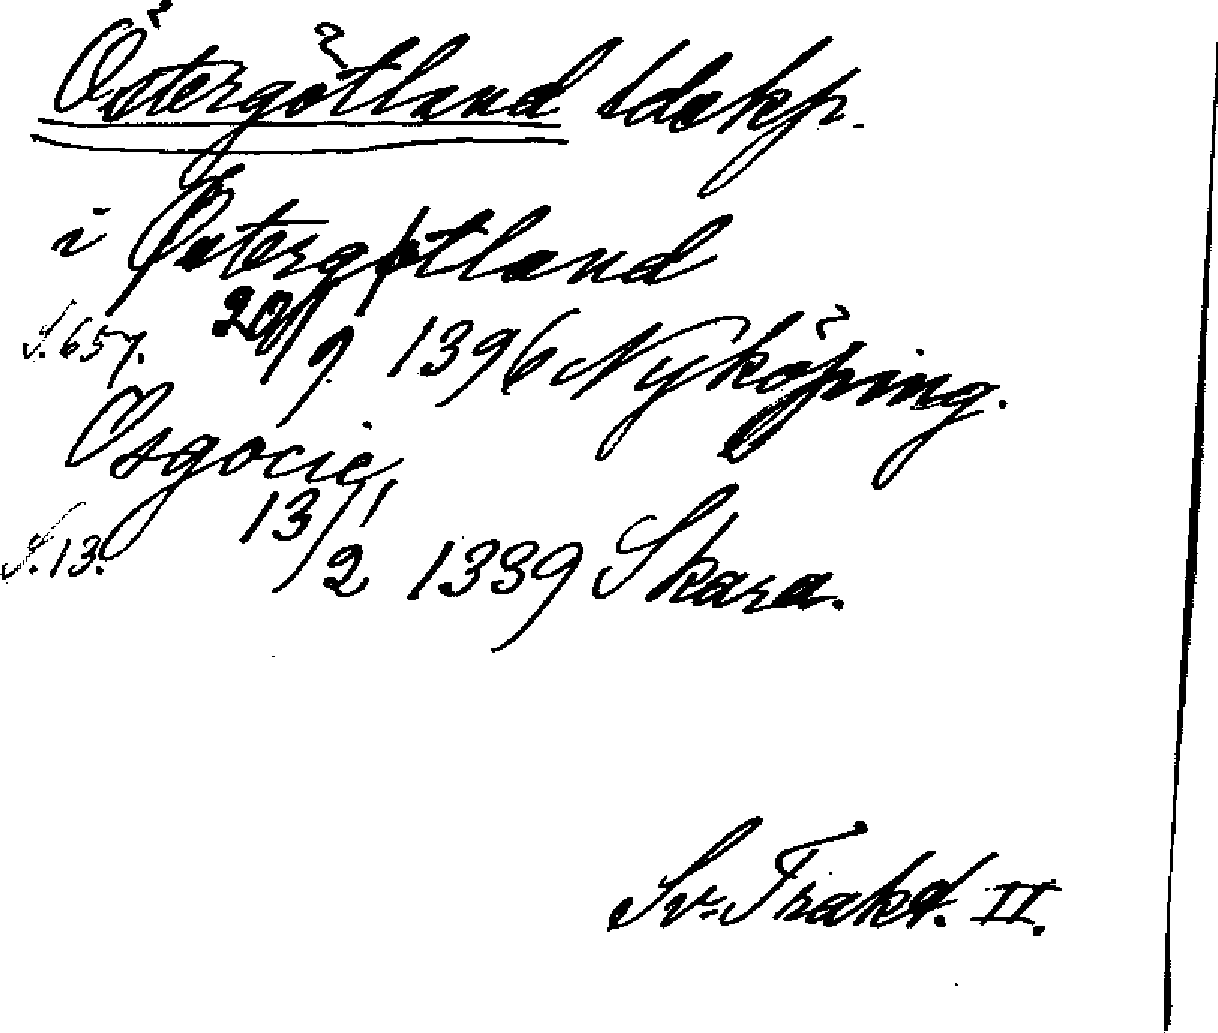 Östergötland ldskp.
i Østergøtland
S. 657. 29/9 1396 Nyköping.
Osgocie
S. 13. 13/2 1339 Skara.
Sv. Trakt. II.